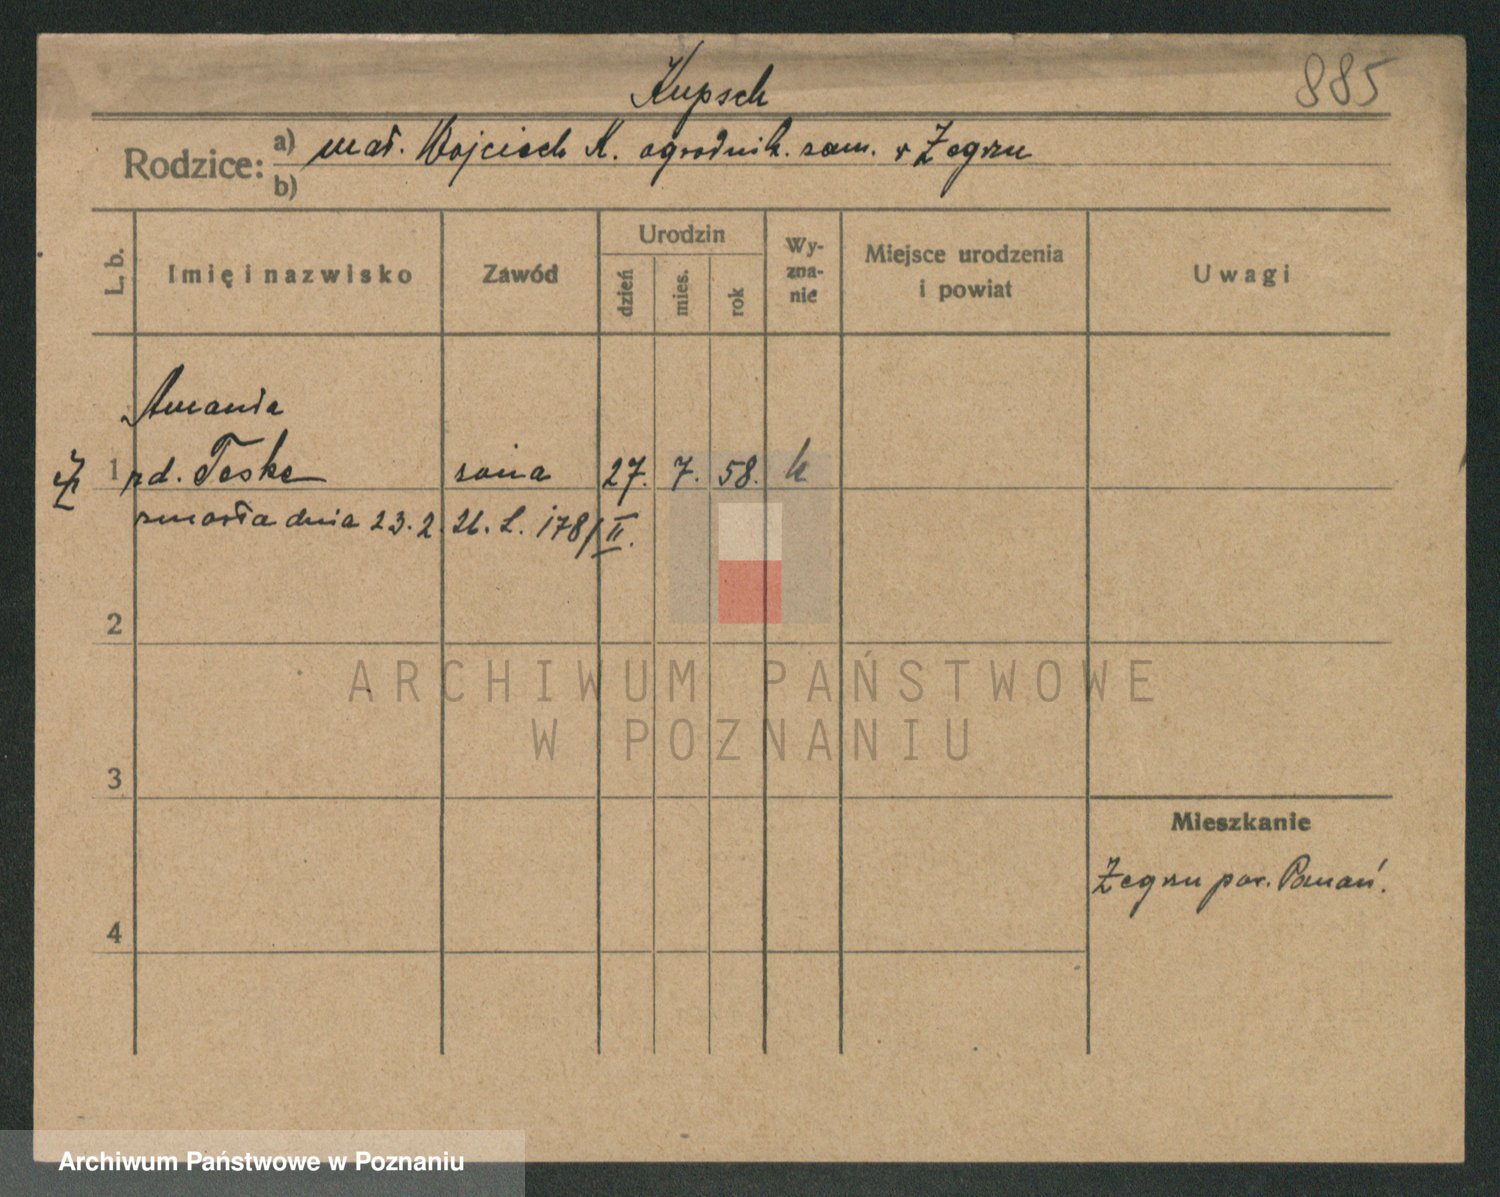 885
Kupsch
Rodzice: a) mał. Wojciech K. ogrodnik. zam. w Żegrzu
b)
L. b. Imię i nazwisko Zawód Urodzin dzień mies. rok Wy-zna-nie Miejsce urodzenia i powiat Uwagi
Amanda
1 zd. Teske żona 27. 7. 58. k
zmarła dnia 23. 2. 26. L. 178/II.
2
3
4
Mieszkanie
Żegrzu pow. Poznań.
ARCHIWUM PAŃSTWOWE
W POZNANIU
Archiwum Państwowe w Poznaniu